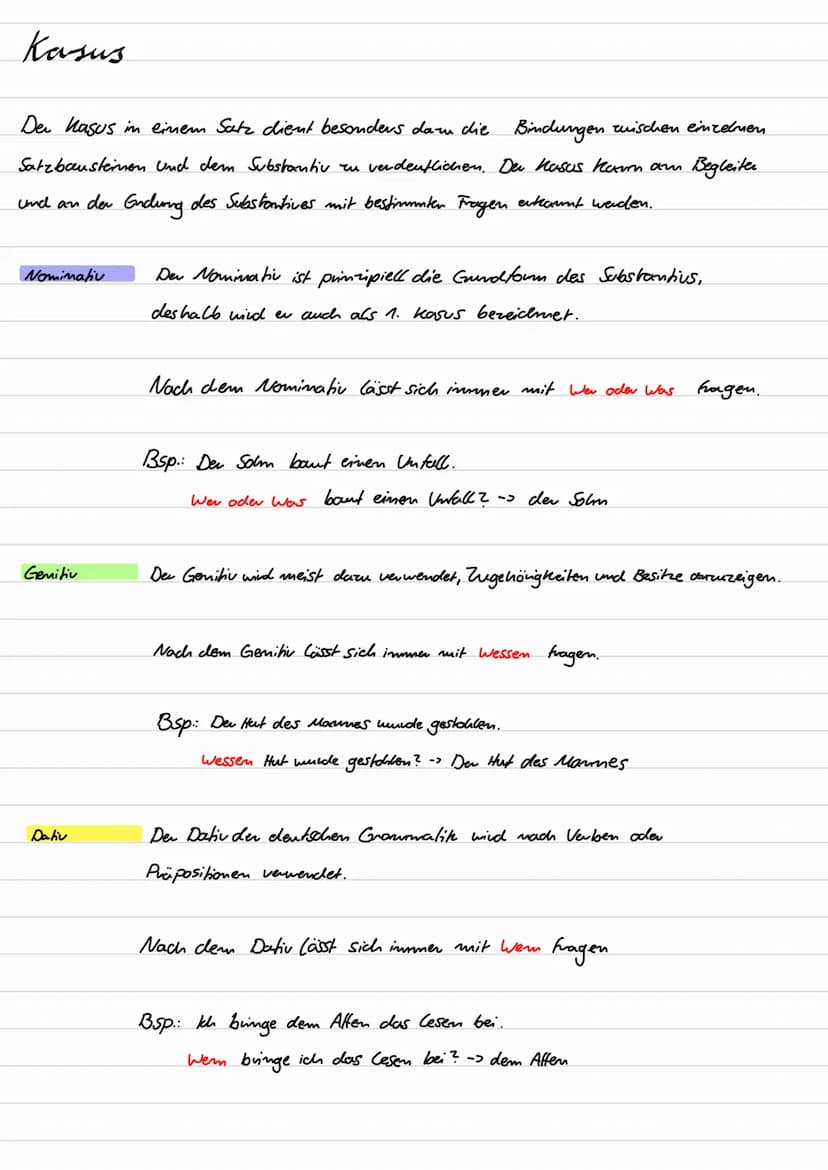 Kasus
Der Kasus in einem Satz dient besonders dazu die Bindungen zwischen einzelnen
Satzbausteinen und dem Substantiv zu verdeutlichen. Der Kasus kann am Begleiter
und an der Endung des Substantives mit bestimmten Fragen erkannt werden.
Nominativ Der Nominativ ist prinzipiell die Grundform des Substantivs,
deshalb wird er auch als 1. Kasus bezeichnet.
Nach dem Nominativ lässt sich immer mit Wer oder Was fragen.
Bsp.: Der Sohn baut einen Unfall.
Wer oder Was baut einen Unfall? -> der Sohn
Genitiv Der Genitiv wird meist dazu verwendet, Zugehörigkeiten und Besitze anzuzeigen.
Nach dem Genitiv lässt sich immer mit Wessen fragen.
Bsp.: Der Hut des Mannes wurde gestohlen.
Wessen Hut wurde gestohlen? -> Der Hut des Mannes
Dativ Der Dativ der deutschen Grammatik wird nach Verben oder
Präpositionen verwendet.
Nach dem Dativ lässt sich immer mit Wem fragen
Bsp.: Ich bringe dem Affen das Lesen bei.
Wem bringe ich das Lesen bei? -> dem Affen